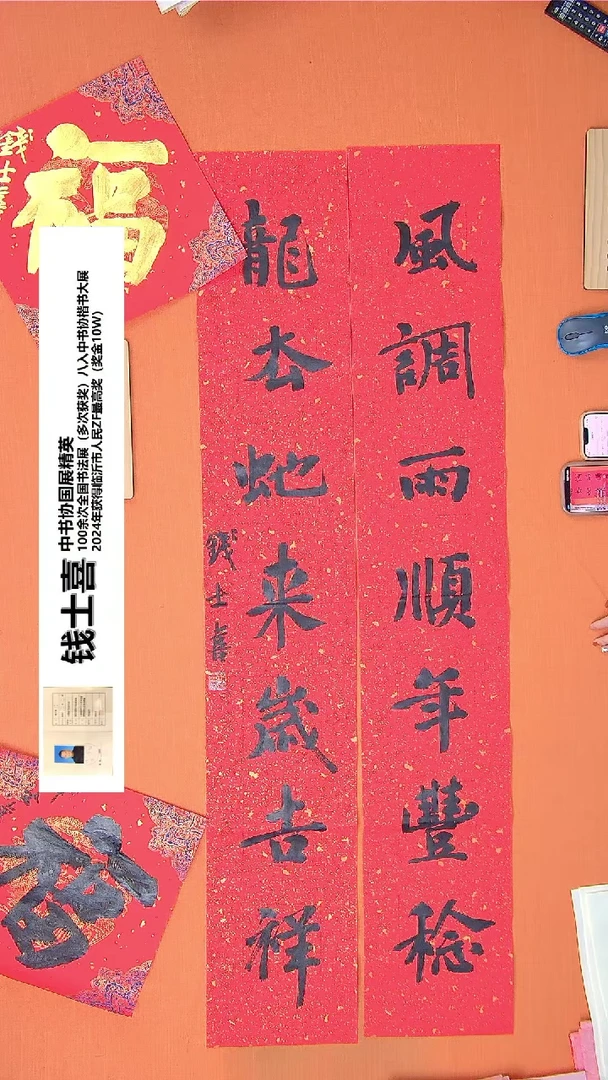 風調雨順年豐稔
龍去虵来歲吉祥
錢士喜
福
錢士喜
钱士喜
中书协国展精英
100余次全国书法展（多次获奖）八入中书协楷书大展
2024年获得临沂市人民ZF最高奖（奖金10W）